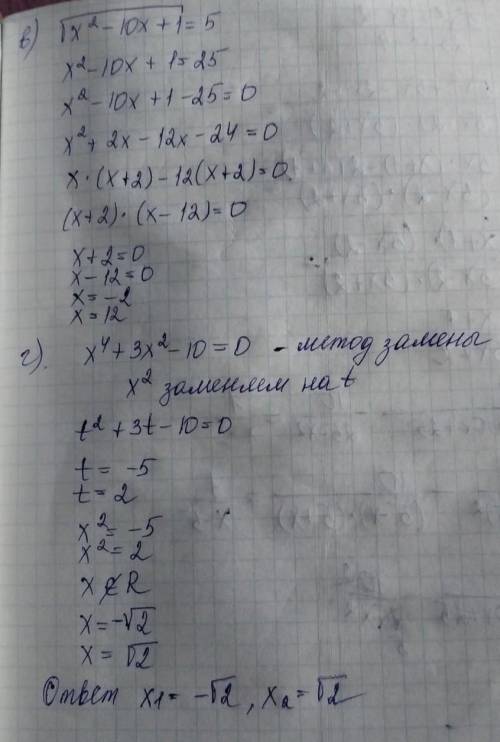 в) √x² - 10x + 1 = 5
x² - 10x + 1 = 25
x² - 10x + 1 - 25 = 0
x² + 2x - 12x - 24 = 0
x · (x+2) - 12(x+2) = 0
(x+2) · (x - 12) = 0
x + 2 = 0
x - 12 = 0
x = -2
x = 12
г). x⁴ + 3x² - 10 = 0 - метод замены
x² заменяем на t
t² + 3t - 10 = 0
t = -5
t = 2
x² = -5
x² = 2
x ∉ R
x = -√2
x = √2
Ответ x₁ = -√2, x₂ = √2